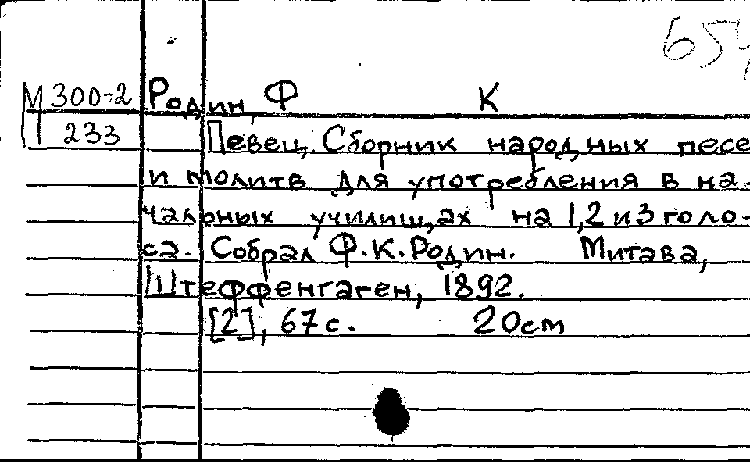 654
М 300-2 Родин, Ф К
233 Певец. Сборник народных песе
и молитв для употребления в на-
чальных училищ,ах на 1,2 и 3 голо-
са. Собрал Ф.К.Родин. Митава,
Штеффенгаген, 1892.
[2], 67 с. 20см